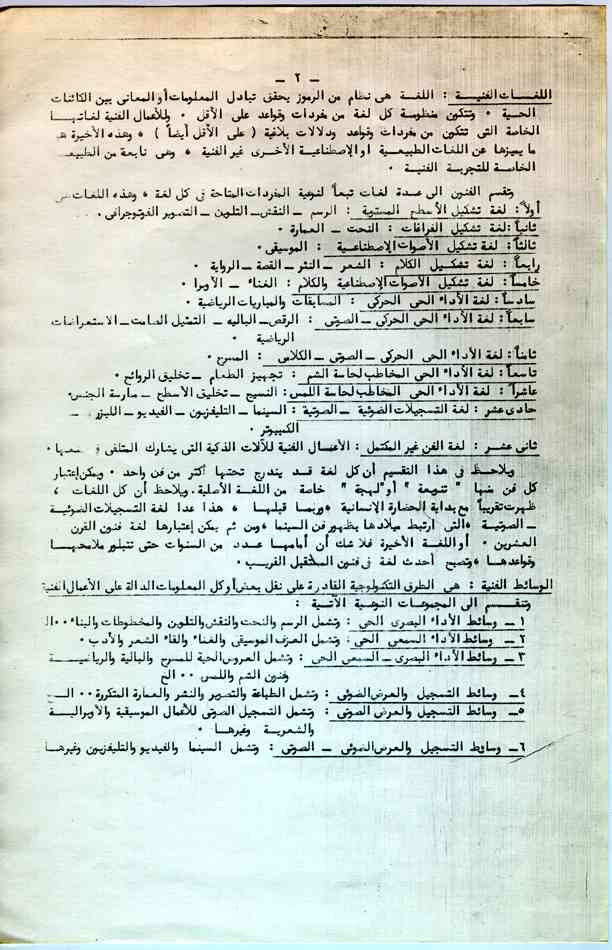 ـ ٢ ـ
اللغـــات الفنيـــة : اللغــة هى نظام من الرموز يحقق تبادل المعلومات أو المعانى بين الكائنات
الحيـة ٠ وتتكون منظومـة كل لغـة من مفردات وقواعد على الأقل ٠ وللأعمال الفنية لغاتهـا
الخاصة التى تتكون من مفردات وقواعد ودلالات بلاغية ( على الأقل أيضاً ) ، وهذه الأخيرة هى
ما يميزها عن اللغات الطبيعيـة او الإصطناعيـة الأخـرى غير الفنية ، وهى نابعة من الطبيعـة
الخاصـة للتجربـة الفنية ٠
وتقسم الفنون الى عـدة لغات تبعـاً لنوعية المفردات المتاحة فى كل لغـة ، وهذه اللغات هى
أولاً : لغـة تشكيل الأسطح المستوية : الرسم ـ النقش ـ التلوين ـ التصوير الفوتوجرافى ٠
ثانيـاً : لغة تشكيل الفراغات : النحت ـ العمارة ٠
ثالثـاً : لغـة تشكيل الأصوات الإصطناعيـة : الموسيقى ٠
رابعـاً : لغة تشكيل الكلام : الشعر ـ النثر ـ القصة ـ الرواية ٠
خامسـاً : لغة تشكيل الأصوات الإصطناعية والكلام : الغناء ـ الأوبرا ٠
سادسـاً : لغة الأداء الحى الحركى : المسابقات والمباريات الرياضية ٠
سابعـاً : لغة الأداء الحى الحركى ـ الصوتى : الرقص ـ الباليه ـ التمثيل الصامت ـ الاستعراضات
الرياضية ٠
ثامنـاً : لغة الأداء الحى الحركى ـ الصوتى ـ الكلامى : المسرح ٠
تاسعـاً : لغة الأداء الحى المخاطب لحاسة الشم : تجهيز الطعام ـ تخليق الروائح ٠
عاشراً : لغة الأداء الحى المخاطب لحاسة اللمس : النسيج ـ تخليق الأسطح ـ ممارسة الجنس ٠
حادى عشر : لغة التسجيلات الضوئية ـ الصوتية : السينما ـ التليفزيون ـ الفيديو ـ الليزر ـ
الكمبيوتر ٠
ثانى عشر : لغة الفن غير المكتمل : الأعمال الفنية للآلات الذكية التى يشارك المتلقى فى صنعها ٠
ويلاحظ فى هذا التقسيم أن كل لغة قـد يندرج تحتها أكثر من فن واحد ٠ ويمكن إعتبار
كل فن منها " تنويعة " أو " لهجة " خاصة من اللغـة الأصلية . ويلاحظ أن كل اللغات ،
ظهرت تقريباً مع بداية الحضارة الإنسانية ، وربمـا قبلهـا ، هذا عدا لغة التسجيلات الضوئيـة
ـ الصوتية ، التى أرتبط ميلادها بظهور فن السينما ، ومن ثم يمكن إعتبارها لغة فنون القرن
العشرين ٠ أو اللغة الأخيرة فلا شك أن أمامها عـدد من السنوات حتى تتبلور ملامحهـا
وقواعدها ، وتصبح أحدث لغة فى فنون المستقبل القريب ٠
الوسائط الفنية : هى الطرق التكنولوجية القادرة على نقل بعض أو كل المعلومات الدالة على الأعمال الفنية
وتنقسـم الى المجموعـات النوعية الآتيـة :
١ ـ وسائط الأداء البصرى الحى : وتشمل الرسم والنحت والنقش والتلوين والمخطوطات والبناء ٠٠ ال
٢ ـ وسائط الأداء السمعى الحى : وتشمل العزف الموسيقى والغناء والقاء الشعر والأدب ٠
٣ ـ وسائط الأداء البصرى ـ السمعى الحى : وتشمل العروض الحية للمسرح والبالية والرياضيـــة
وفنون الشم واللمس ٠٠ الخ
٤ ـ وسائط التسجيل والعرض الضوئى : وتشمل الطباعة والتصوير والنشر والعمارة المتكررة ٠٠ الـــخ
٥ ـ وسائط التسجيل والعرض الصوتى : وتشمل التسجيل الصوتى للأعمال الموسيقية والأوبراليـــة
والشعرية وغيرهـا ٠
٦ ـ وسائط التسجيل والعرض الضوئى ـ الصوتى : وتشمل السينما والفيديو والتليفزيون وغيرهـا